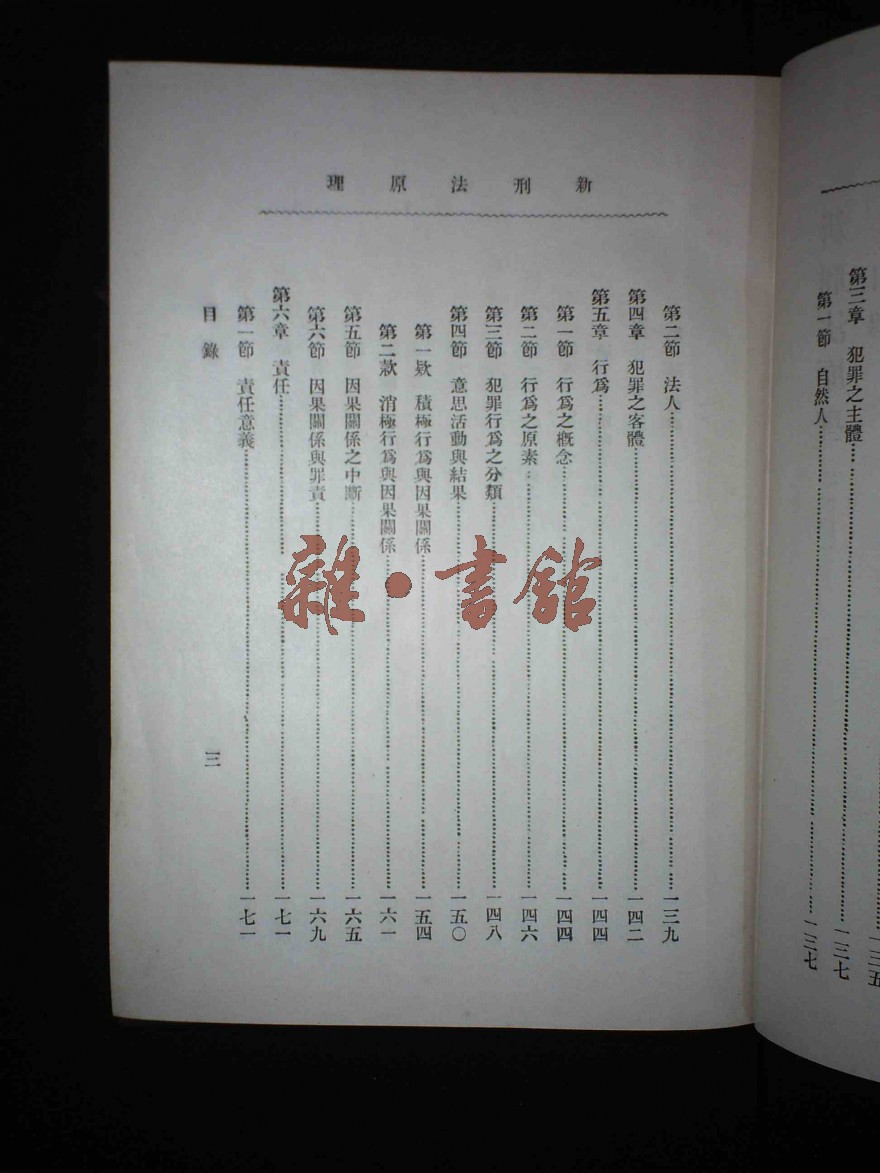 第三章　犯罪之主體……一三七
第一節　自然人……一三七
新刑法原理
第二節　法人……一三九
第四章　犯罪之客體……一四二
第五章　行爲……一四四
第一節　行爲之概念……一四四
第二節　行爲之原素……一四六
第三節　犯罪行爲之分類……一四八
第四節　意思活動與結果……一五〇
第一欵　積極行爲與因果關係……一五四
第二欵　消極行爲與因果關係……一六一
第五節　因果關係之中斷……一六五
第六節　因果關係與罪責……一六九
第六章　責任……一七一
第一節　責任意義……一七一
目錄
三
雜·書館